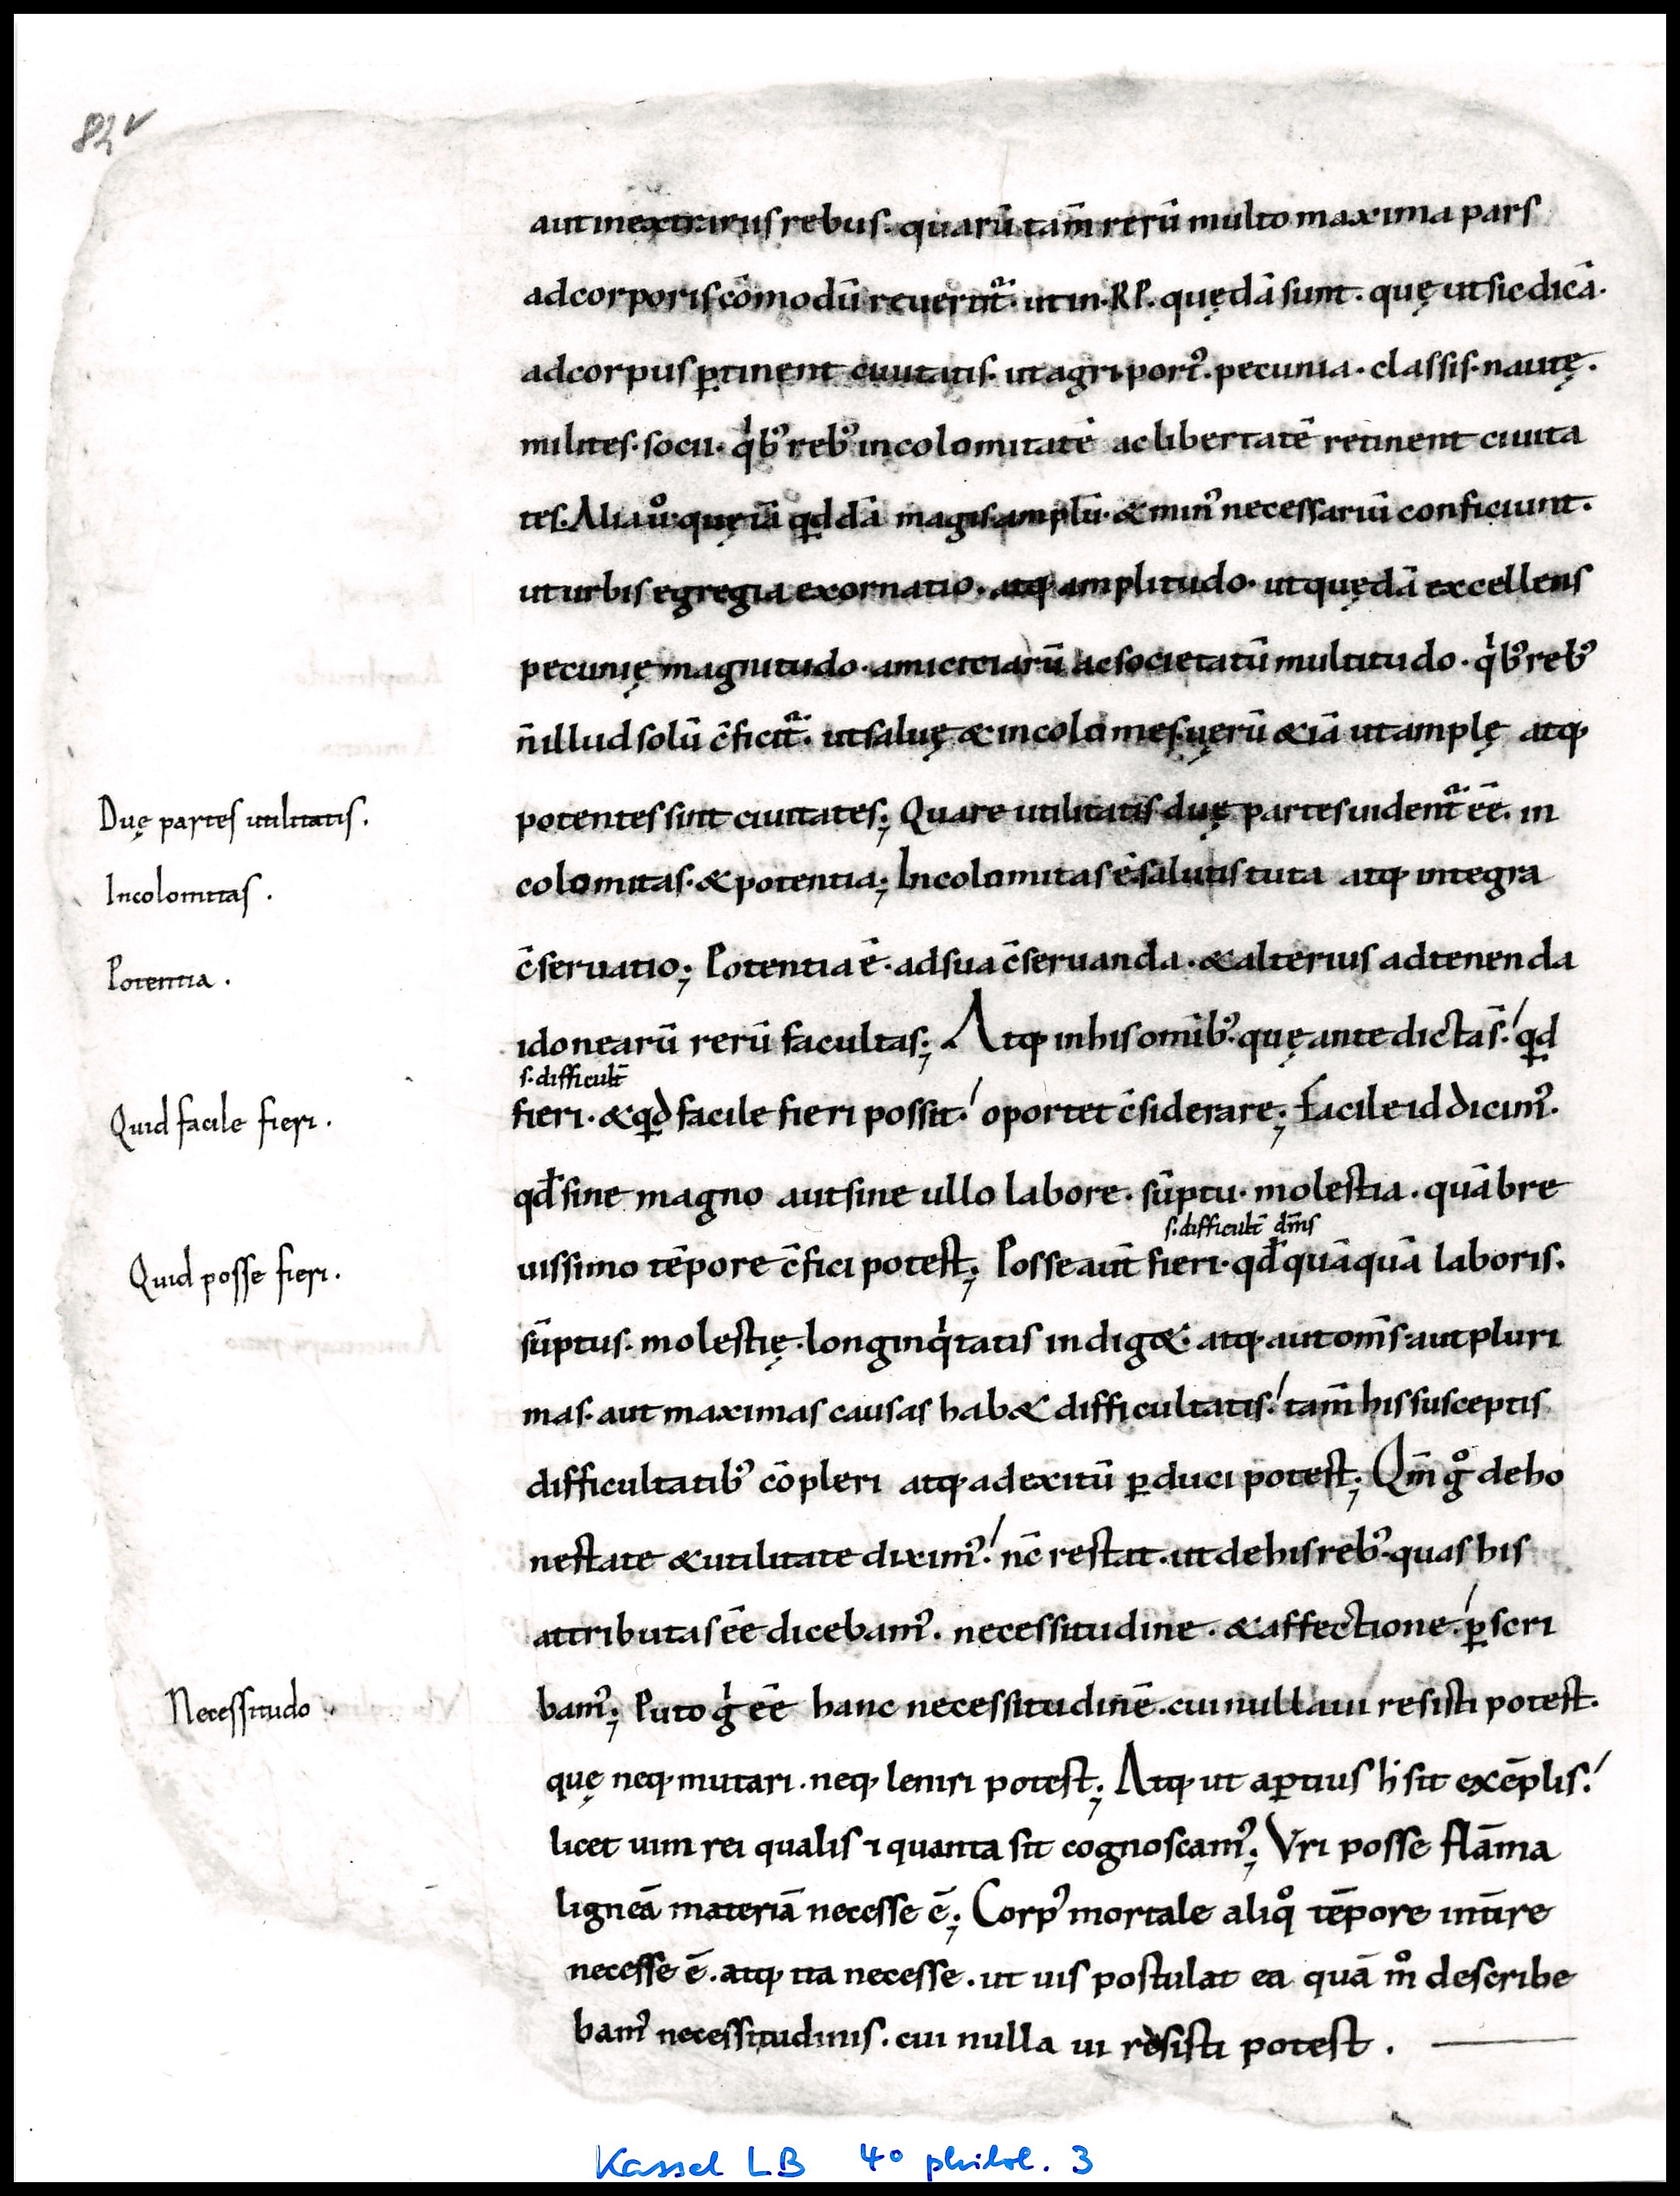 82v
aut in extrariis rebus. quarū tam̄ rerū multo maxima pars
ad corporis cōmodū reuertit̄ᵃ. ut in .RP. quędā sunt. quę ut sic dicā.
ad corpus ꝑtinent ciuitatis. ut agri port᾿. pecunia. classis. nautę.
milites. socii. qⁱb᾿ reb᾿ incolomitatē ac libertatē retinent ciuita
tes. Alia ůo quę iā qddā magis amplū. & min᾿ necessariū conficiunt.
ut urbis egregia exornatio. atq; amplitudo. ut quędā excellens
pecunię magnitudo. amicitiarū ac societatū multitudo. qⁱb᾿ reb᾿
n̄ illud solū c̄ficit̄ᵃ. ut saluę & incolomes. uerū &iā ut amplę atq;
Duę partes utilitatis.
potentes sint ciuitates; Quare utilitatis duę partes uident̄ᵃ ēē. in
Incolomitas.
colomitas. & potentia; Incolomitas ē salutis tuta atq; integra
Potentia.
c̄seruatio; Potentia ē. ad sua c̄seruanda. & alterius adtenenda
idonearū rerū facultas; Atq; in his omīb᾿. quę ante dicta s̄. qd
s. difficult̄
Quid facile fieri.
fieri. & qd facile fieri possit. oportet c̄siderare; Facile id dicim᾿.
qđ sine magno aut sine ullo labore. sūptu. molestia. quā bre
s. difficult̄ dm̄s
Quid posse fieri.
uissimo tēpore c̄fici potest; Posse aut̄ fieri. qđ quāquā laboris.
sūptus. molestię. longinqⁱtatis indig&. atq; aut om̄s. aut pluri
mas. aut maximas causas hab& difficultatis. tam̄ his susceptis
difficultatib᾿ cōpleri atq; ad exitū ꝑduci potest; Qm̄ gͦ de ho
nestate & utilitate dixim᾿. nc̄ restat. ut de his reb᾿. quas his
attributas ēē dicebam᾿. necessitudine. & affectione. ꝑscri
Necessitudo.
bam᾿; Puto gⁱ ēē hanc necessitudinē. cui nulla ui resisti potest.
quę neq; mutari. neq; leniri potest; Atq; ut aꝑtius h᾿ sit exēplis.
licet uim rei qualis ⁊ quanta sit cognoscam᾿; Vri posse flāma
ligneā materiā necesse ē; Corp᾿ mortale aliqͦ tēpore int̄ire
necesse ē. atq; ita necesse. ut uis postulat ea quā mͦ describe
bam᾿ necessitudinis. cui nulla ui resisti potest.
Kassel LB 4° philol. 3